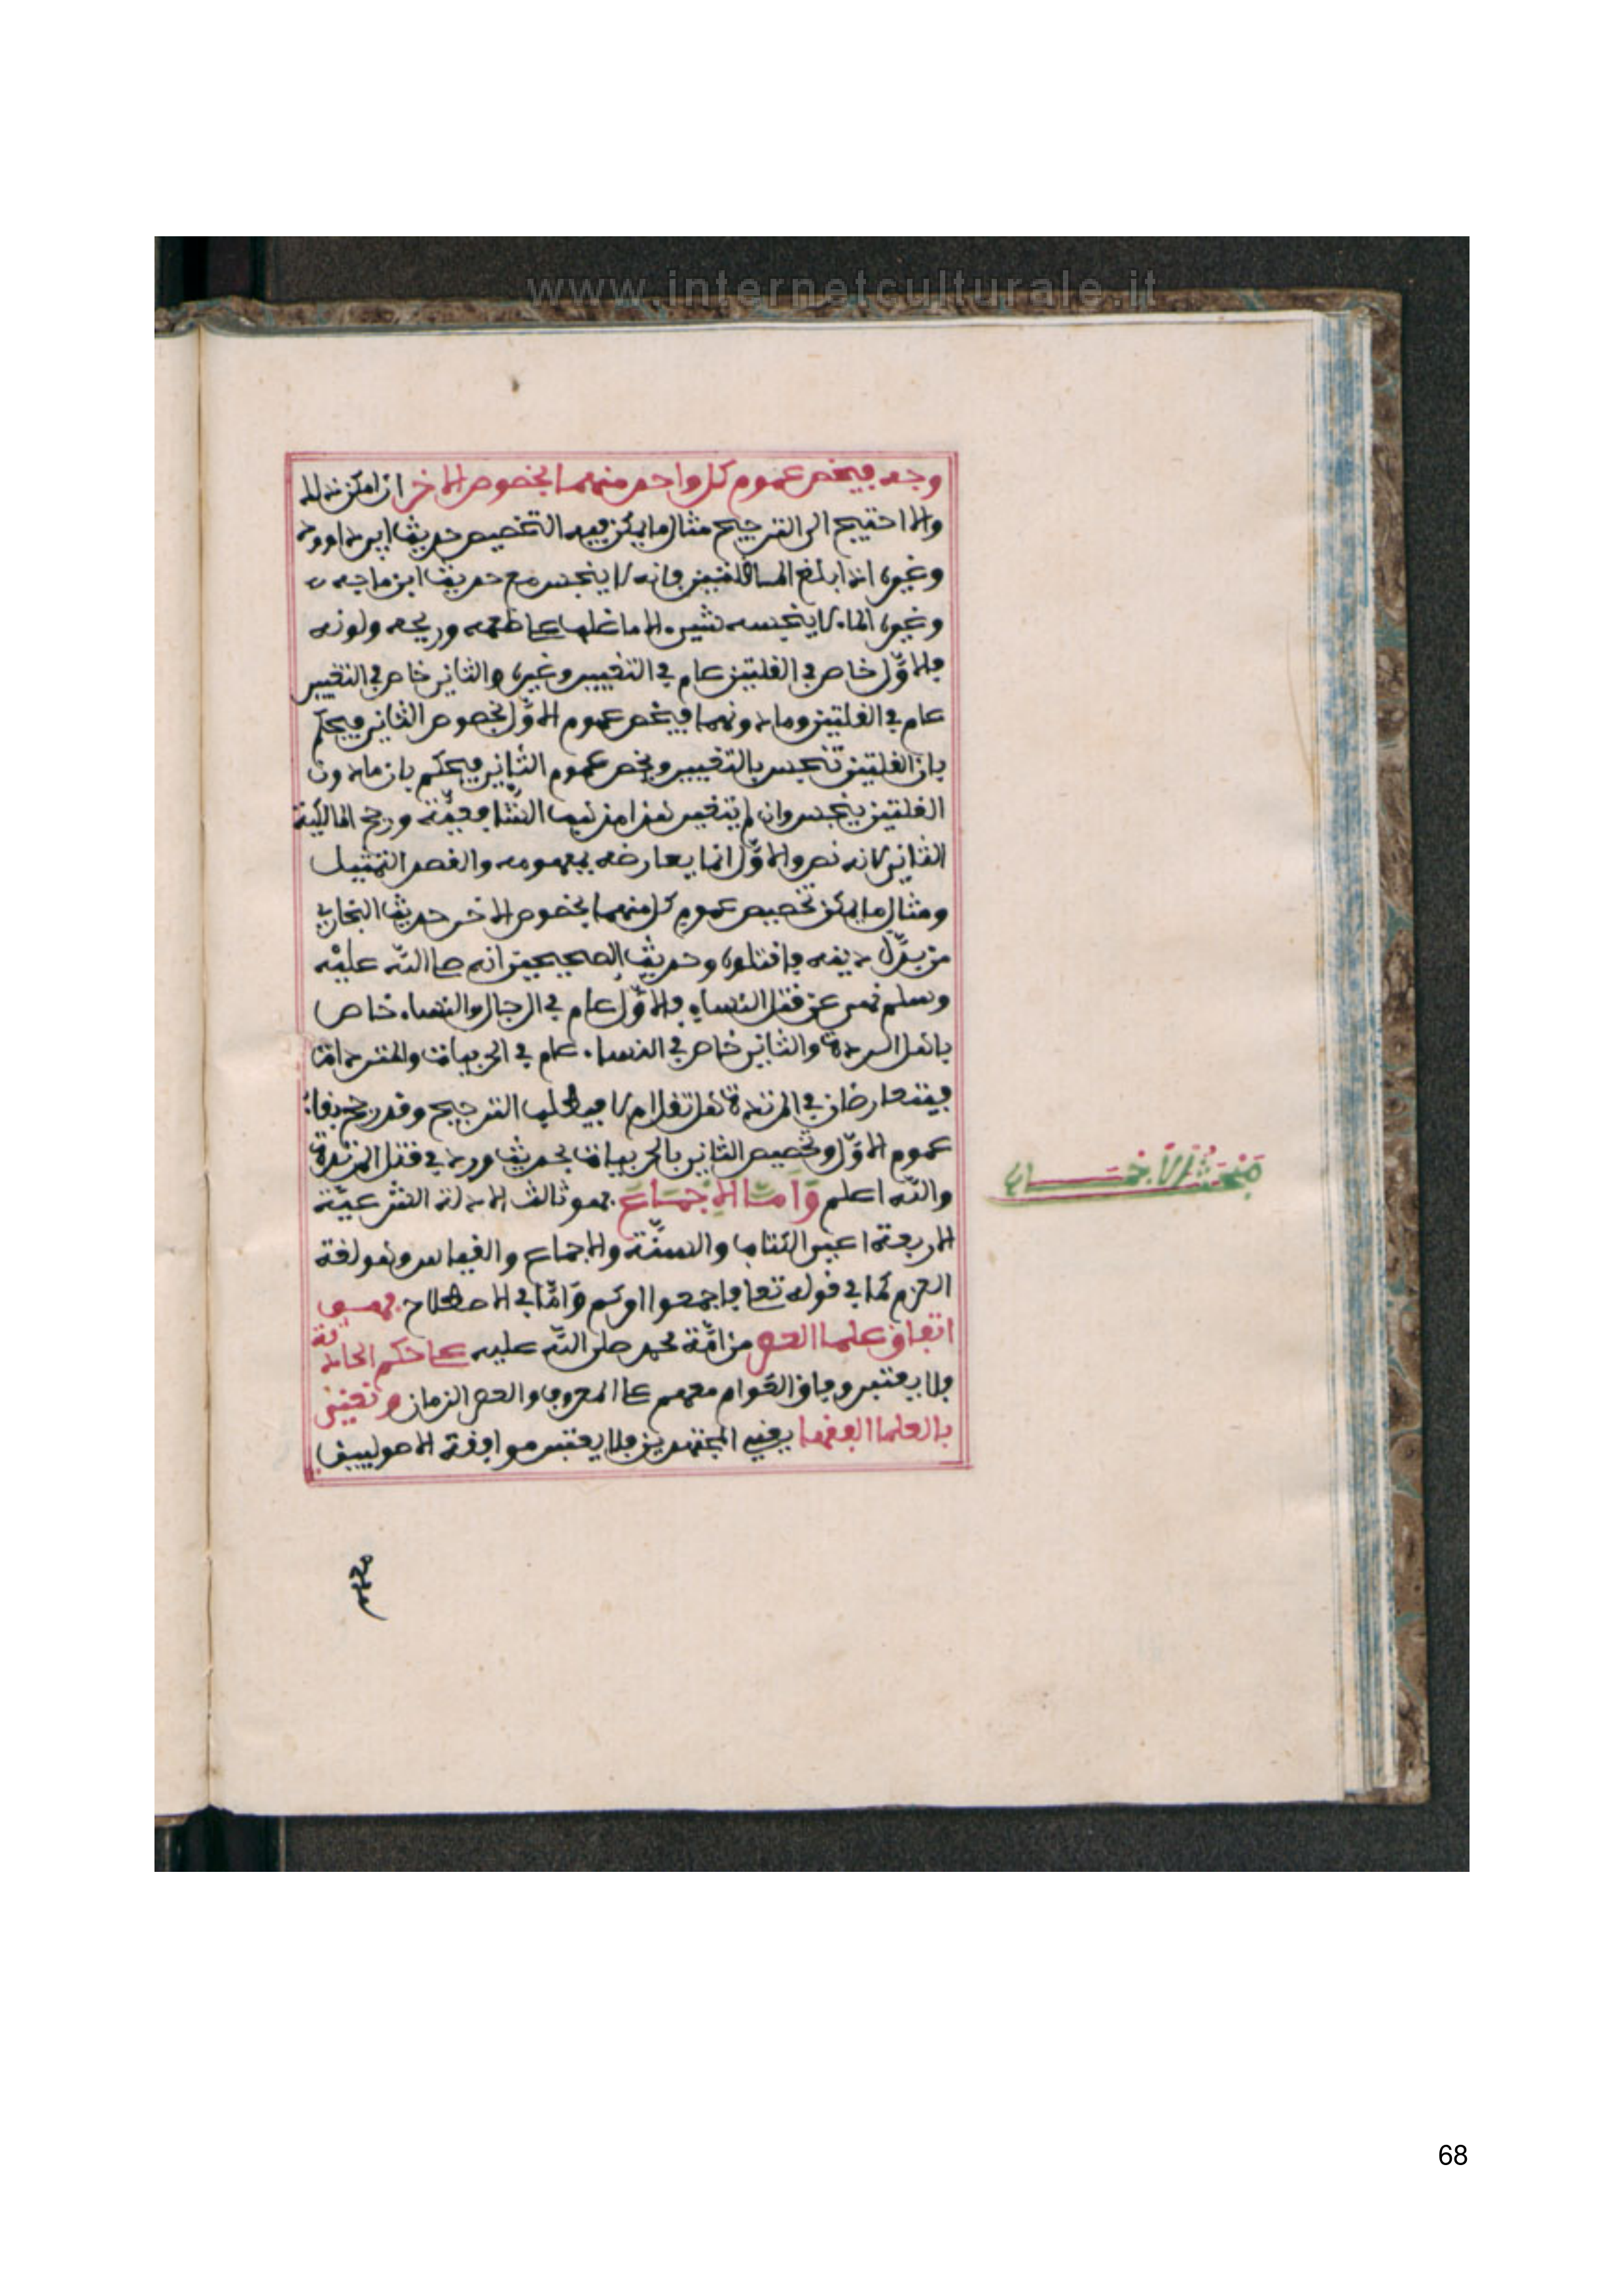 www.internetculturale.it
وجه فيخص عموم كل واحد منهما بخصوص الاخر ان امكن ذلك
والا احتيج الى الترجيح مثال ما يمكن فيه التخصيص حديث ابي داوود
وغيره اذا بلغ الماء قلتين فانه لا ينجس مع حديث ابن ماجه
وغيره الماء لا ينجسه شيء الا ما غلب على طعمه وريحه ولونه
فالاوّل خاص في القلتين عام في التغيير وغيره والثاني خاص في التغيير
عام في القلتين وما دونهما فيخص عموم الاوّل بخصوص الثاني فيحكم
بان القلتين تنجس بالتغيير ويخص عموم الثاني فيحكم بان ما دون
القلتين ينجس وان لم يتغير هذا مذهب الشافعيّة ورجح المالكية
الثاني لانه نص والاوّل انما يعارضه بمفهومه والقصد التمثيل
ومثال ما لا يمكن تخصيص عموم كل منهما بخصوص الاخر حديث البخاري
من بدّل دينه فاقتلوه وحديث الصحيحين انه صلى اللّه عليْه
وسلم نهى عن قتل النساء فالاوّل عام في الرجال والنساء خاص
باهل الردة والثاني خاص في النساء عام في الحربيات والمرتدات
فيتعارضان في المرتدة هل تقتل ام لا فيطلب الترجيح وقد رجح بقاء
عموم الاوّل وتخصيص الثاني بالحربيات بحديث ورد في قتل المرتدة
واللّه اعلم وَامَّا الاِجْمَاعُ فهو ثالث الادلة الشرعيّة
الاربعة اعني الكتاب والسنّة والاجماع والقياس وهو لغة
العزم كما في قوله تعلى فاجمعوا امركم وَامَّا في الاصطلاح فهو
اتفاق علماء العصر من امّة محمد صلى اللّه عليه على حكم الحادثة
فلا يعتبر وفاق العَوام معهم على المعروف والعصر الزمان ونعني
بالعلماء الفقهاء يعني المجتهدين فلا يعتبر موافقة الاصوليين
مَبْحَثُ الاَجْمَـــاع
68